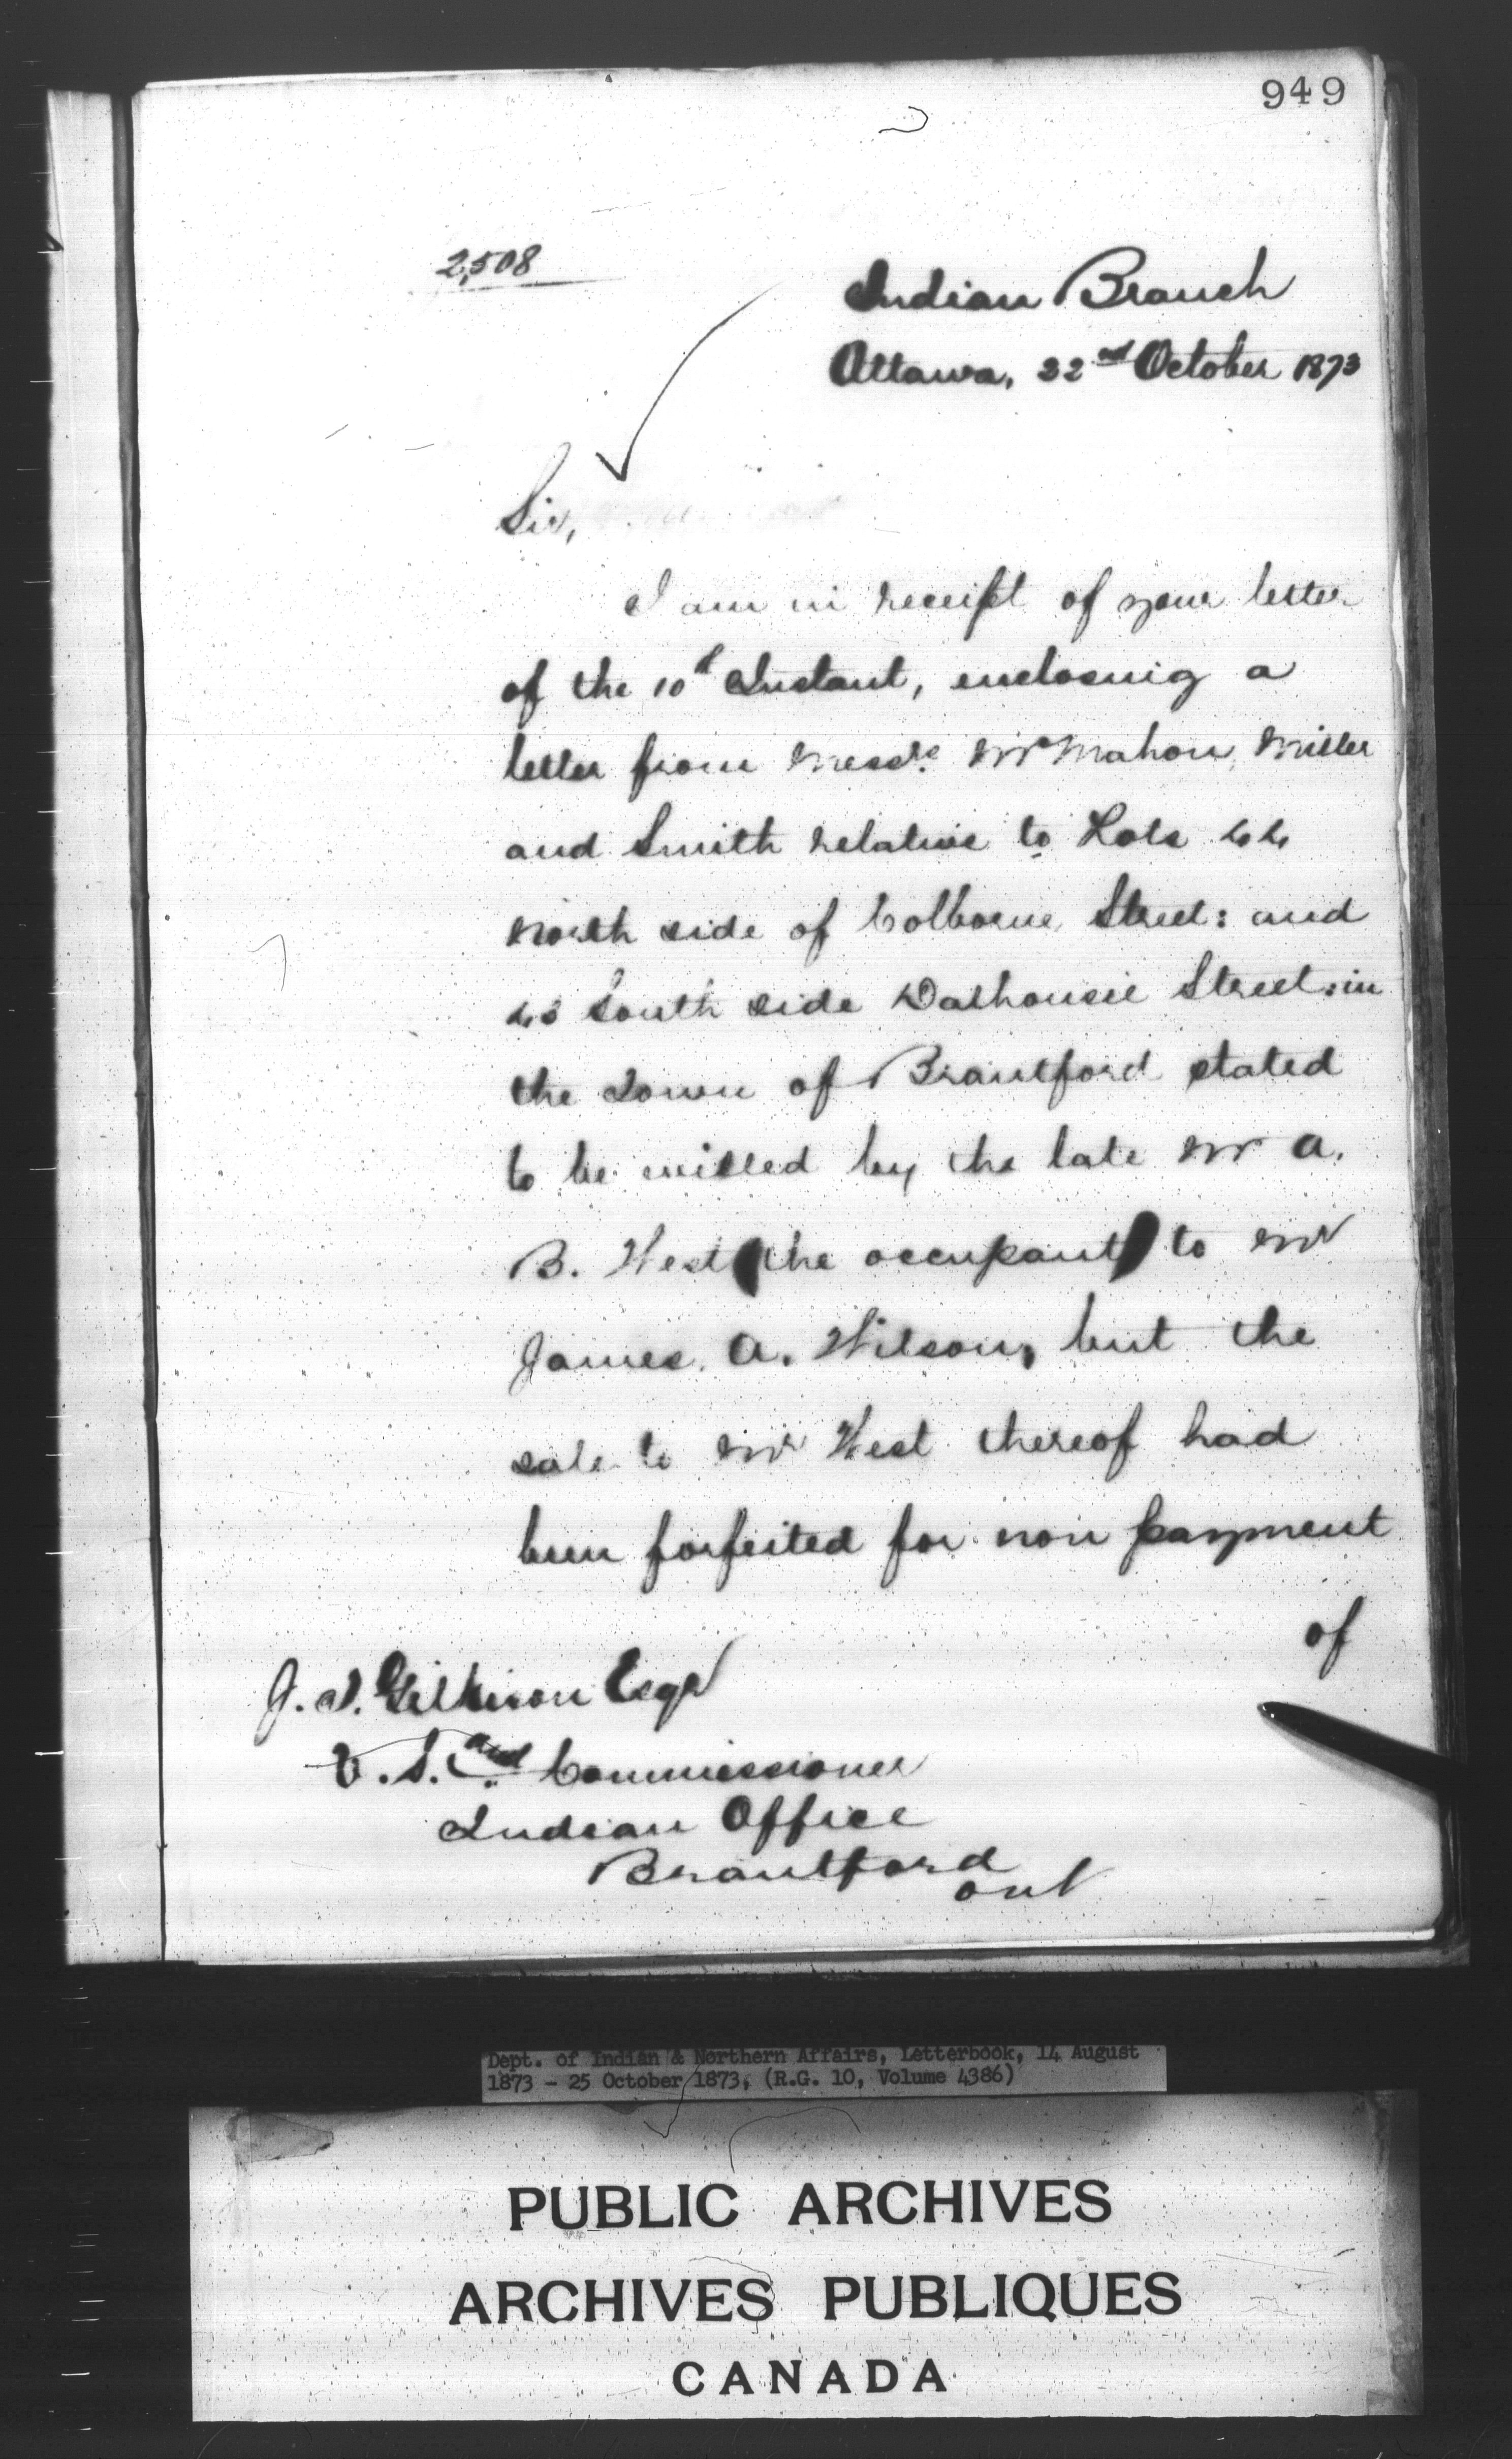 949
2,508
Indian Branch
Ottawa, 22nd October 1873
Sir,
I am in receipt of your letter
of the 10th Instant, enclosing a
letter from Messrs. McMahon, Miller
and Smith relative to Lots 44
North side of Colborne Street: and
43 South side Dalhousie Street: in
the Town of Brantford stated
to be willed by the late Mr A.
B. West (the occupant) to Mr
James. A. Wilson, but the
sale to Mr West thereof had
been forfeited for non payment
of
J. T. Gilkison Esqr
V. S. and Commissioner
Indian Office
Brantford
Ont
Dept. of Indian & Northern Affairs, Letterbook, 14 August
1873 - 25 October 1873, (R.G. 10, Volume 4386)
PUBLIC ARCHIVES
ARCHIVES PUBLIQUES
CANADA